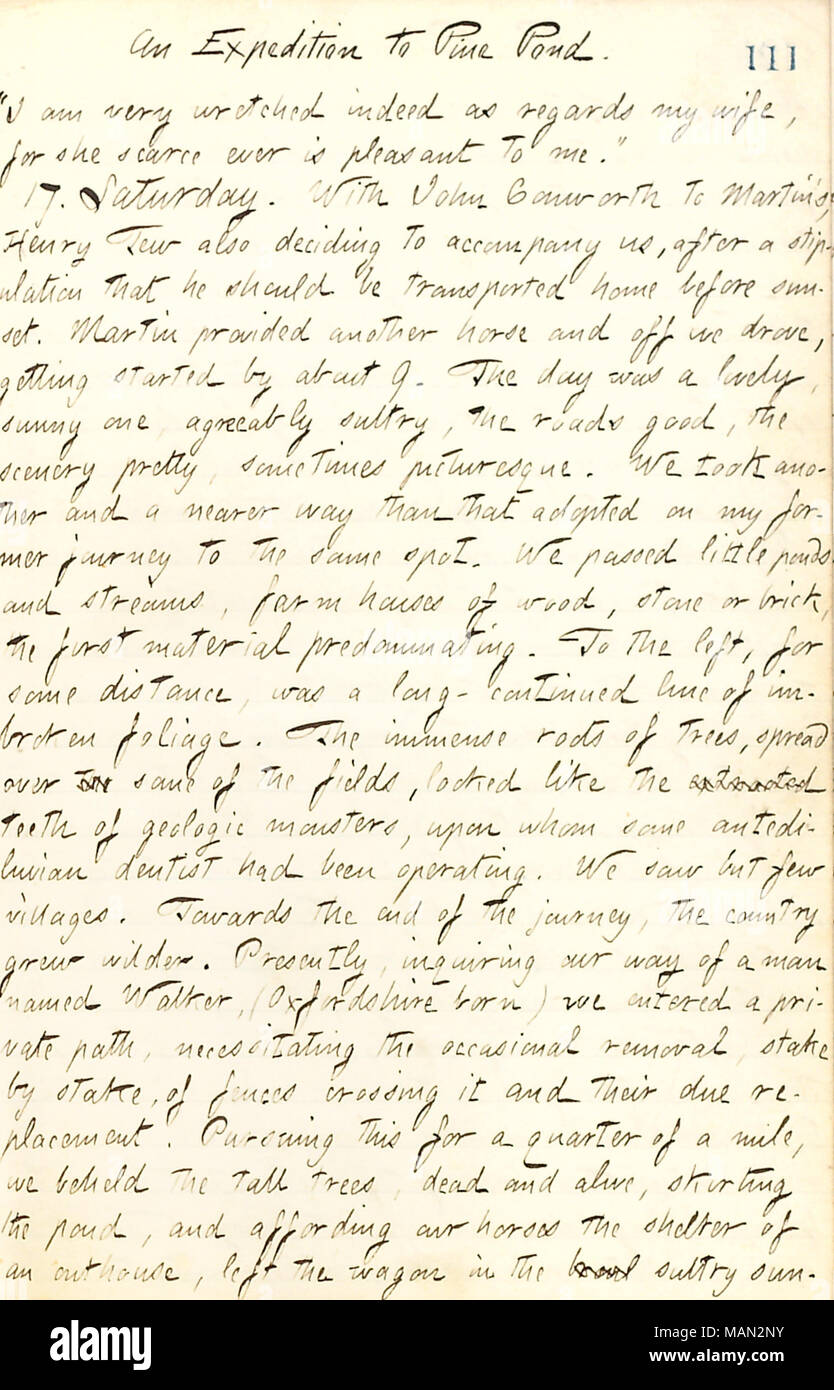 An Expedition to Pine Pond.
111
"I am very wretched indeed as regards my wife,
for she scarce ever is pleasant to me."
17. Saturday. With John Conworth to Martin's,
Henry Tew also deciding to accompany us, after a stip-
ulation that he should be transported home before sun-
set. Martin provided another horse and off we drove,
getting started by about 9. The day was a lovely,
sunny one, agreeably sultry, the roads good, the
scenery pretty, sometimes picturesque. We took ano-
ther and a nearer way than that adopted on my for-
mer journey to the same spot. We passed little ponds
and streams, farm houses of wood, stone or brick,
the first material predominating. To the left, for
some distance, was a long-continued line of un-
broken foliage. The immense roots of trees, spread
over some of the fields, looked like the extracted
teeth of geologic monsters, upon whom some antedi-
luvian dentist had been operating. We saw but few
villages. Towards the end of the journey, the country
grew wilder. Presently, inquiring our way of a man
named Walker, (Oxfordshire born) we entered a pri-
vate path, necessitating the occasional removal, stake
by stake, of fences crossing it and their due re-
placement. Pursuing this for a quarter of a mile,
we beheld the tall trees, dead and alive, skirting
the pond, and affording our horses the shelter of
an outhouse, left the wagon in the sultry sun-
alamy
Image ID: MAN2NY
www.alamy.com